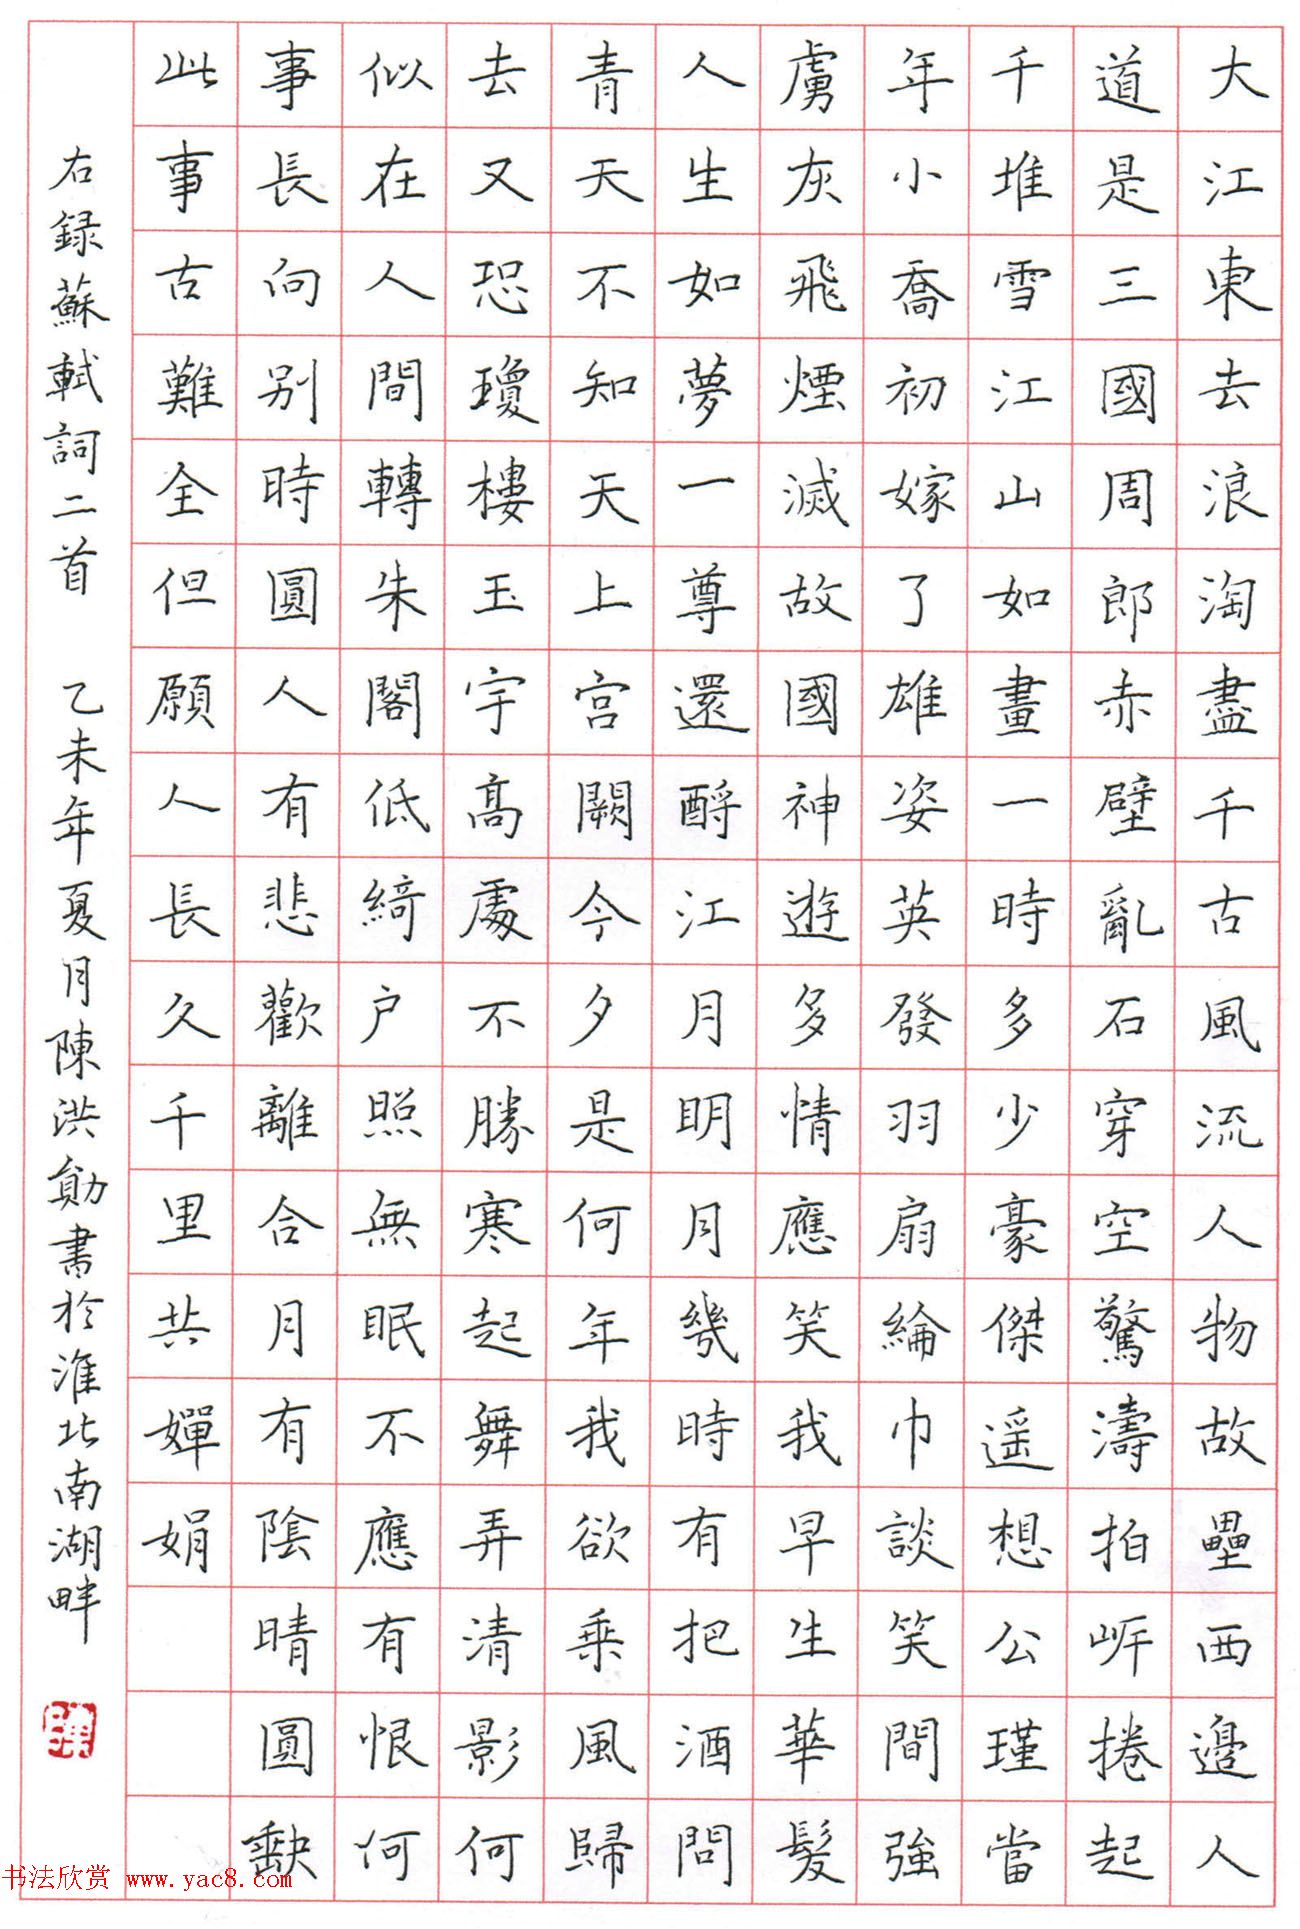 大江東去浪淘盡千古風流人物故壘西邊人
道是三國周郎赤壁亂石穿空驚濤拍岸捲起
千堆雪江山如畫一時多少豪傑遥想公瑾當
年小喬初嫁了雄姿英發羽扇綸巾談笑間強
虜灰飛煙滅故國神遊多情應笑我早生華髮
人生如夢一尊還酹江月明月幾時有把酒問
青天不知天上宫闕今夕是何年我欲乘風歸
去又恐瓊樓玉宇高處不勝寒起舞弄清影何
似在人間轉朱閣低綺户照無眠不應有恨何
事長向别時圓人有悲歡離合月有陰晴圓缺
此事古難全但願人長久千里共嬋娟
右録蘇軾詞二首 乙未年夏月陳洪勛書於淮北南湖畔
书法欣赏 www.yac8.com